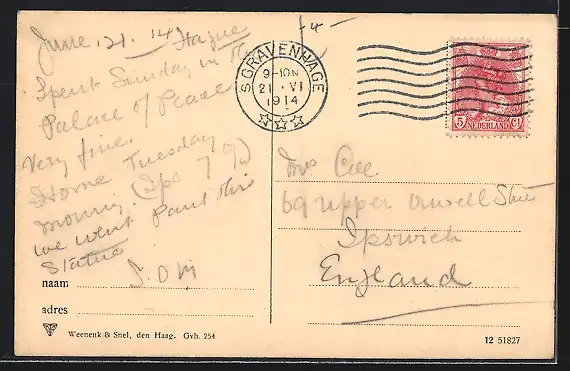 June 21. 14 Hague
Spent Sunday in the
Palace of Peace
Very fine.
Home Tuesday
morning. (Ips 7 o/c)
we went past this
Statue
naam
adres
Weenenk & Snel, den Haag. Gvh. 254
£4 —
'S GRAVENHAGE
9-10N
21 . VI
1914
5 NEDERLAND Ct
Mrs
69 Upper Orwell Street
Ipswich
England
12 51827